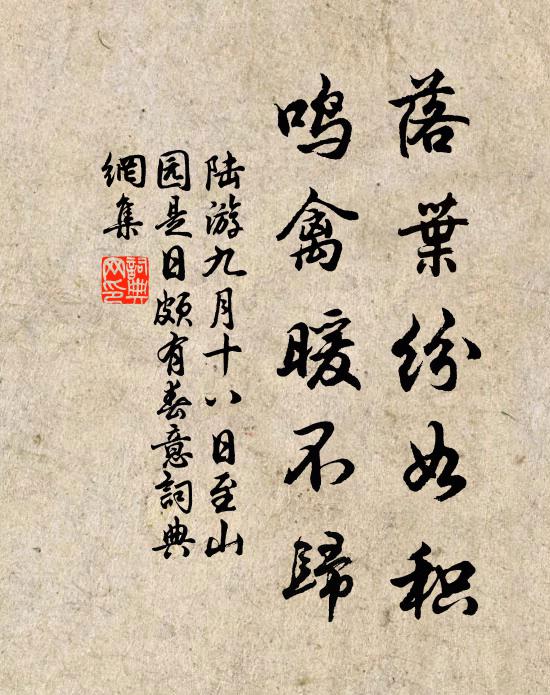 落葉紛如积
鸣禽暖不歸
陆游九月十八日至山
园是日頗有春意詞典
網集
詞典
网印